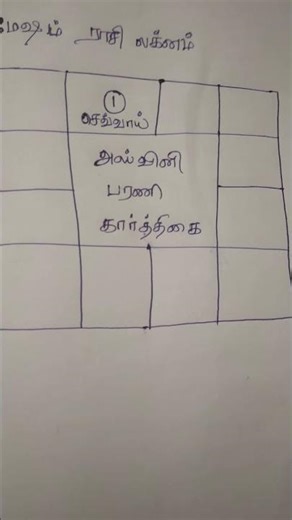 மேஷம் ராசி லக்னம்
1
செவ்வாய்
அஸ்வினி
பரணி
கார்த்திகை